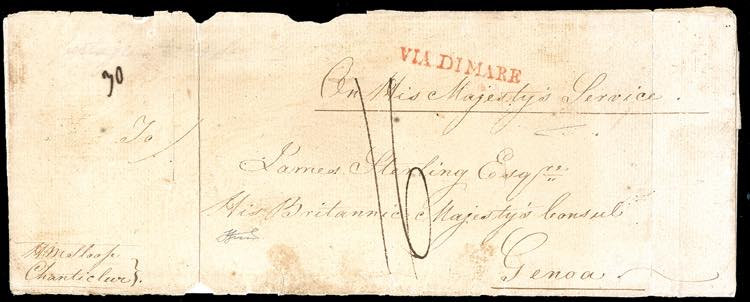 VIA DI MARE
30
On His Majesty's Service.
To
James Sterling Esqre
16
His Britannic Majesty's Consul
Genoa
HM Sloop
Chanticleer